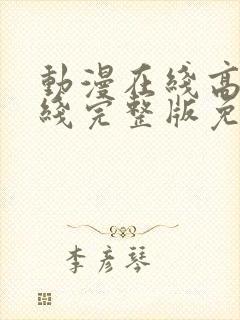 動漫在綫高
綫完整版免
李彦琴